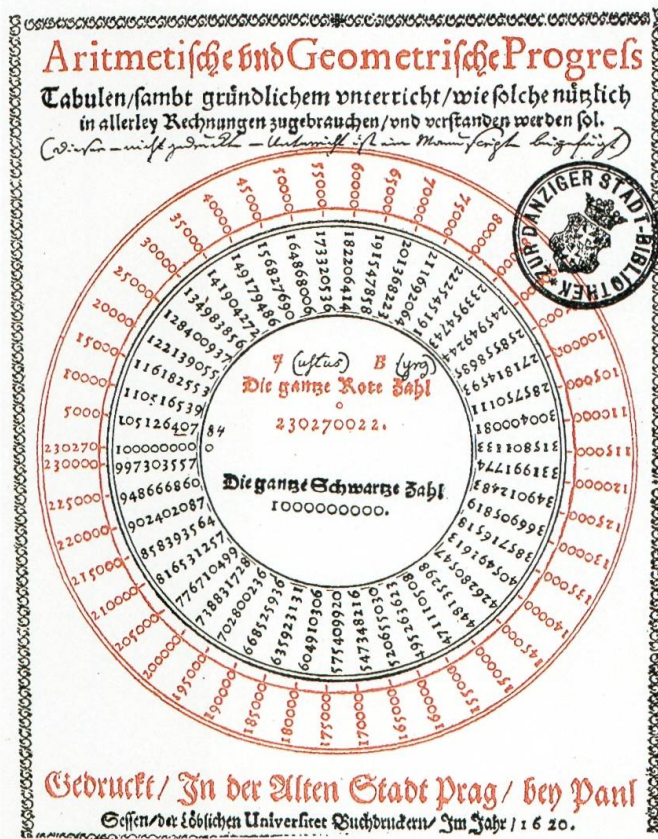 Aritmetiſche vnd Geometriſche Progreſs
Tabulen/ſambt gründlichem vnterricht/wie ſolche nützlich
in allerley Rechnungen zugebrauchen/vnd verſtanden werden ſol.
(dieser – nicht gedruckt – Unterricht ist im Manuscript beigefügt)
ZUR DANZIGER STADT-BIBLIOTHEK *
5000
10000
15000
20000
25000
30000
35000
40000
45000
50000
55000
60000
65000
70000
75000
80000
105000
110000
115000
120000
125000
130000
135000
140000
145000
150000
155000
160000
165000
170000
175000
180000
185000
190000
195000
200000
205000
210000
215000
220000
225000
230000
230270
105126497 84
110516539
116182553
122139055
128400937
134983856
141904272
149179486
156827690
164868006
173320536
182206414
191547858
201368223
211692064
222545191
233954743
245949244
258558685
271814593
285750111
300400081
315801131
331991774
349012483
366905819
385716518
405491613
426280547
448135298
471110508
495263612
520655030
547348216
575409920
604910306
635923131
668525936
702800236
738831728
776710499
816531257
858393564
902402087
948666860
997303557
100000000 0
J (ustus) B (yrg)
Die gantze Rote Zahl
0
230270022.
Die gantze Schwartze Zahl
1000000000.
Gedruckt/ In der Alten Stadt Prag/ bey Paul
Seſſen/der Löblichen Univerſitet Buchdruckern/ Im Jahr/1620.